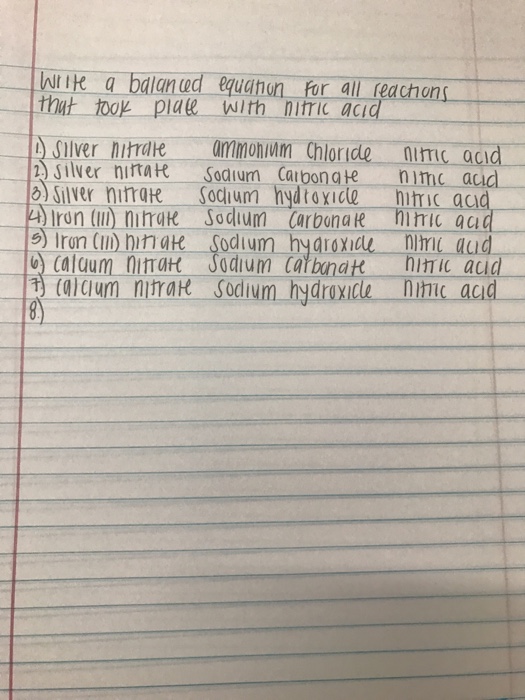 Write a balanced equation for all reactions
that took place with nitric acid
1) Silver nitrate ammonium chloride nitric acid
2) Silver nitrate Sodium carbonate nitric acid
3) Silver nitrate Sodium hydroxide nitric acid
4) Iron (III) nitrate Sodium carbonate nitric acid
5) Iron (III) nitrate Sodium hydroxide nitric acid
6) calcium nitrate Sodium carbonate nitric acid
7) calcium nitrate sodium hydroxide nitric acid
8)